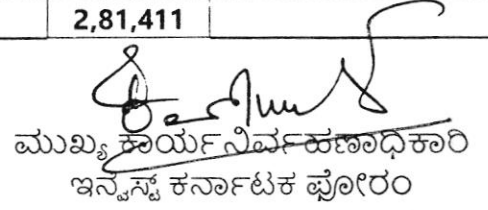 2,81,411
ಮುಖ್ಯ ಕಾರ್ಯನಿರ್ವಹಣಾಧಿಕಾರಿ
ಇನ್ವೆಸ್ಟ್ ಕರ್ನಾಟಕ ಫೋರಂ